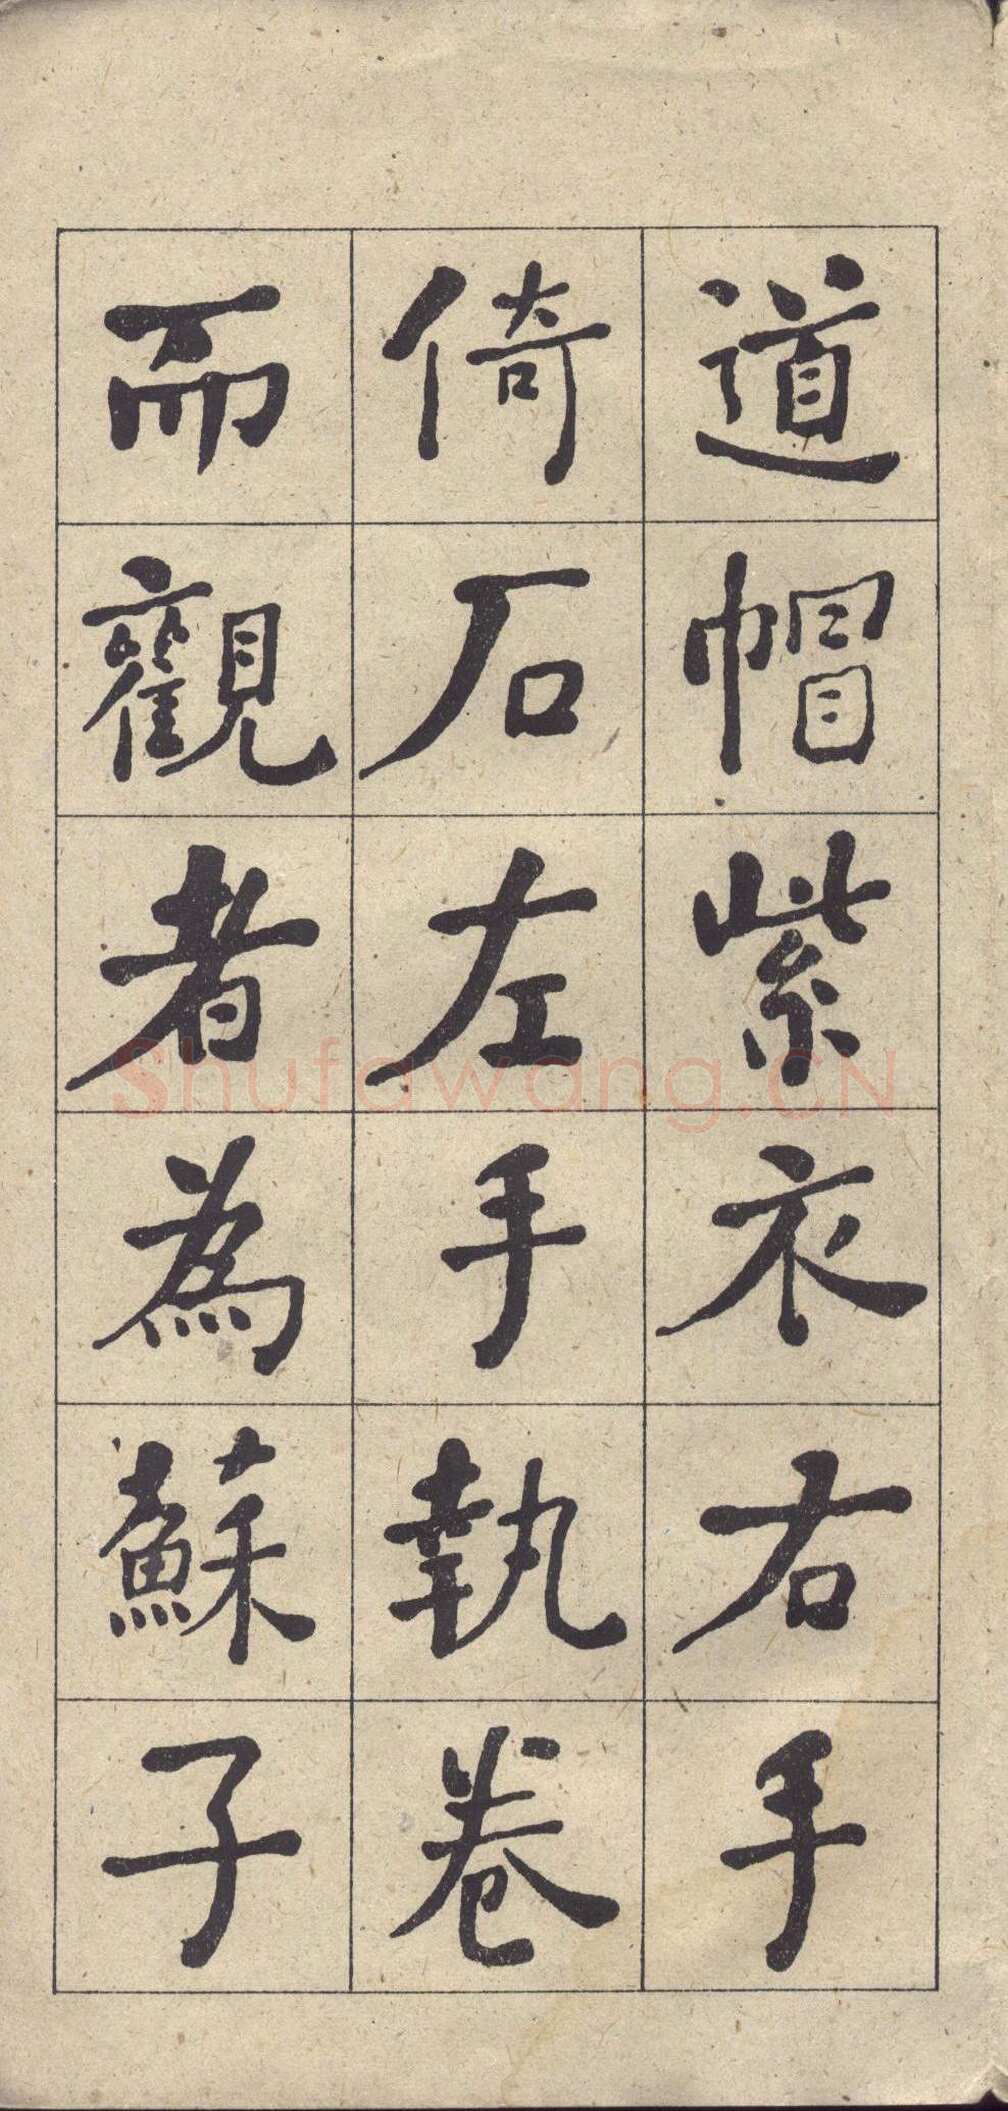 道帽紫衣右手
倚石左手執卷
而觀者為蘇子
Shufawang.CN